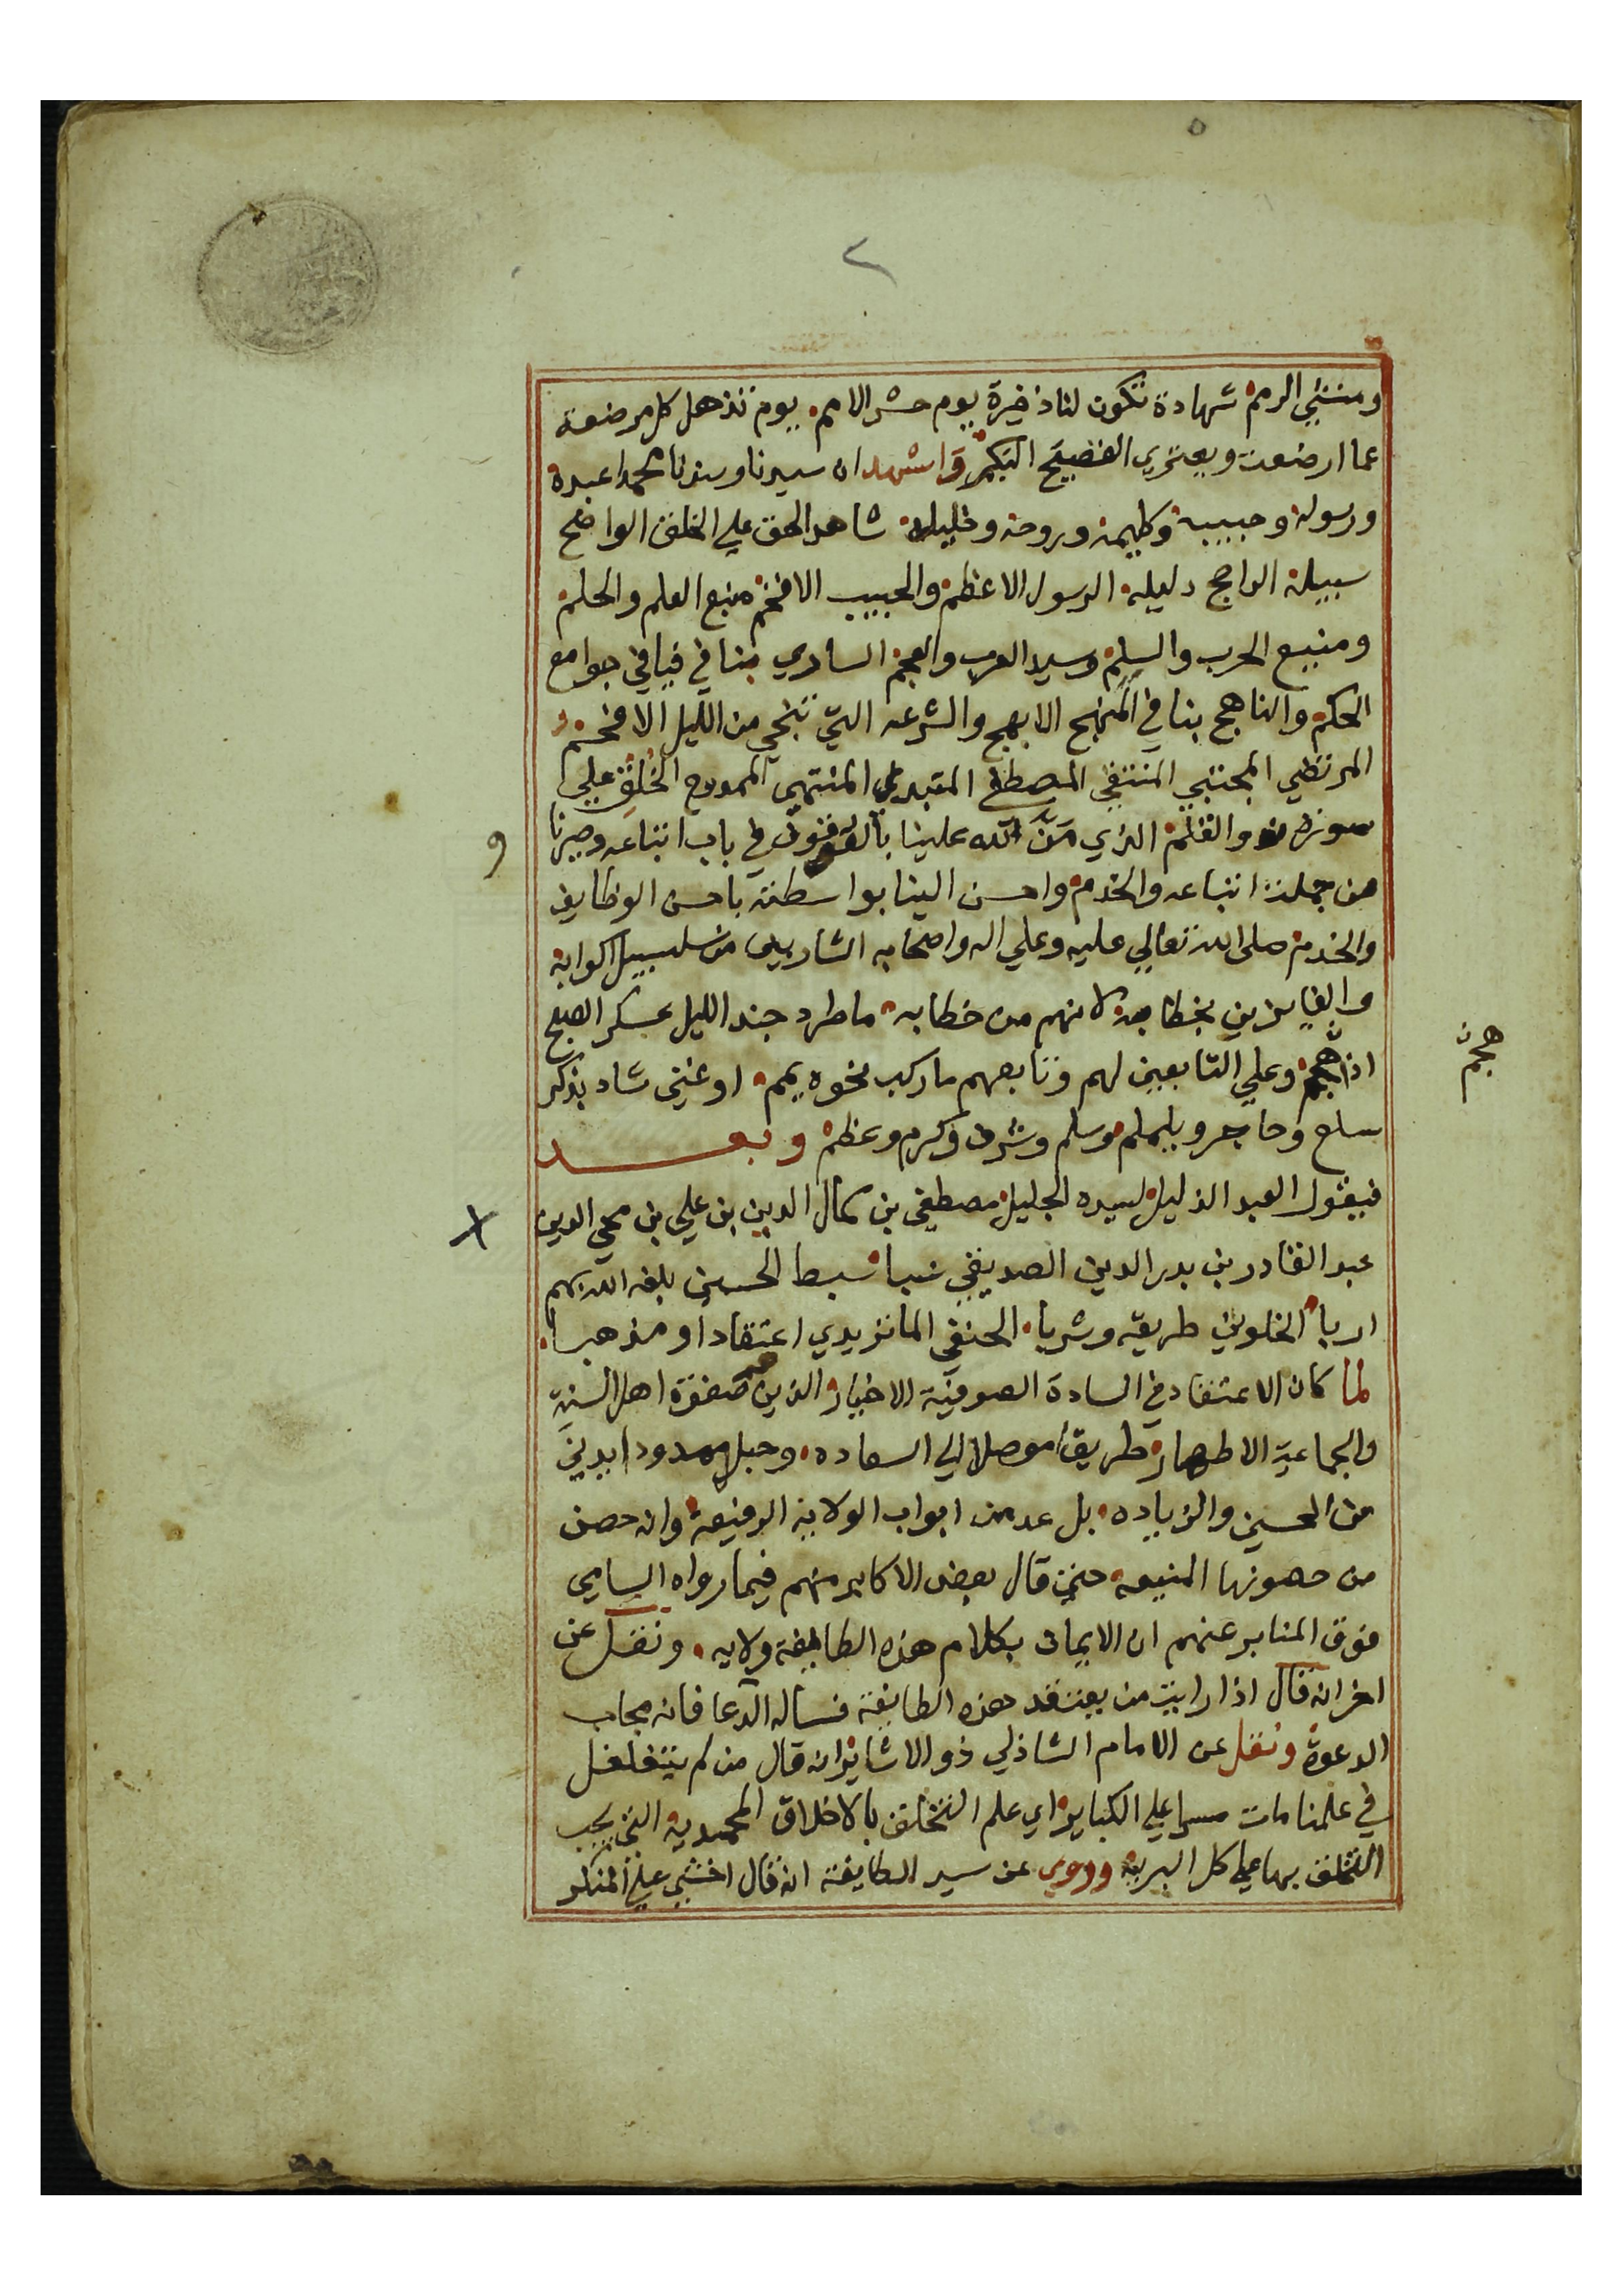 ٢
ومنشئ الرمم شهادة تكون لنا ذخيرة يوم حشر الامم يوم تذهل كل مرضعة
عما ارضعت ويعتري الفصيح البكم واشهد ان سيدنا وسندنا محمدا عبده
ورسوله وحبيبه وكليمه وروحه وخليله شاهد الحق علي الخلق الواضح
سبيله الراجح دليله الرسول الاعظم والحبيب الافخم منبع العلم والحلم
ومنبع الحرب والسلم وسيد العرب والعجم الساري بنا في فيافي جوامع
الحكم والناهج بنا في المنهج الابهج والشرعه التي تنجي من الليل الافحم
المرتضي المجتبي المنتقي المصطفي المبتدي المنتهي الممدوح الخلق علي
والقلم الذي مَنَّ الله علينا بالوقوف في باب اتباعه وصيرنا
من جملة اتباعه والخدم واحسن الينا بواسطته باحسن الوظايف
والخدم صلى الله تعالي عليه وعلي اله واصحابه الشاربين من سلسبيل اكوابه
والفايزين بخطابه لانهم من خطابه ما طرد جند الليل عسكر الصبح
اذا هجم وعلي التابعين لهم وتابعهم ما ركب نحوه يمم او غني شاد بذكر
سلع وحاجر ويلملم وسلم وشرف وكرم وعظم وبعد
فيقول العبد الذليل لسيده الجليل مصطفي بن كمال الدين بن علي بن محي الدين
عبد القادر بن بدر الدين الصديقي نسبا سبط الحسين بلغه الله بهم
اربا الخلوتي طريقة وشربا الحنفي الماتريدي اعتقادا ومذهبا
لما كان الاعتقاد في السادة الصوفية الاخيار الذين هم صفوة اهل السنة
والجماعة الاطهار طريقا موصلا الي السعاده وحبل ممدودا يدني
من الحسني والزياده بل عد من ابواب الولاية الرفيعة وانه حصن
من حصونها المنيعه حتي قال بعض الاكابر منهم فيما رواه السامي
فوق المنابر عنهم ان الايمان بكلام هذه الطايفة ولايه ونقل عن
اخر انه قال اذا رايت من يعتقد هذه الطايفة فساله الدعا فانه مجاب
الدعوة ونقل عن الامام الشاذلي ذو الاشاير انه قال من لم يتغلغل
في علمنا مات مصرا علي الكباير اي علم التخلق بالاخلاق المحمدية التي يجب
التخلق بها علي كل البرية وروي عن سيد الطايفة انه قال اخشي علي المنكر
و
هجم